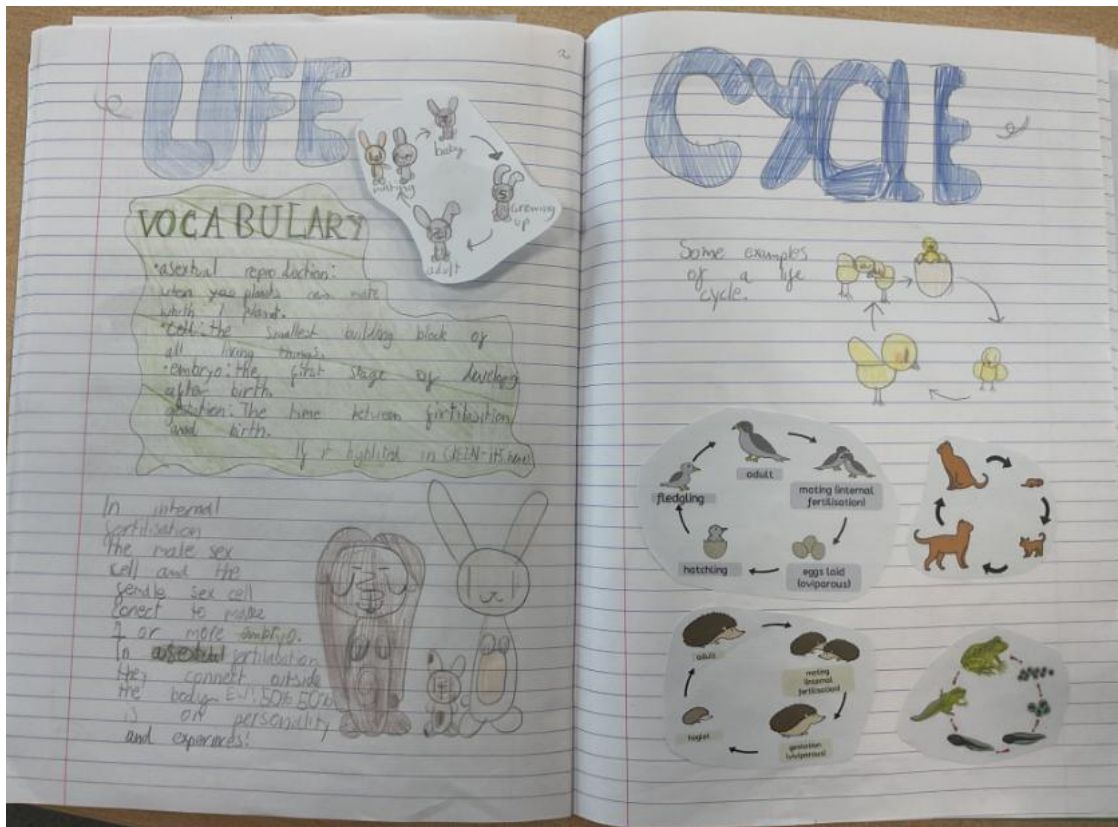 LIFE
baby
mating
Growing
up
adult
VOCABULARY
•asextual reproduction:
when plants can mate
whith 1 planet.
•cell: the smallest building block of
all living things.
•embryo: the first stage of develops
after birth.
gestation: The time between firtilisation
and birth.
If it highlited in GREEN-its here!
In internal
fertilisation
The male sex
cell and the
female sex cell
conect to make
1 or more embryo.
In fortilisation
they connect outside
the body. 50% 50%
is on personality
and experinces!
CYCLE
Some examples
of a life
cycle.
adult
fledgling
mating (internal
fertilisation)
hatchling
eggs laid
(oviparous)
adult
mating
(internal
fertilisation)
hoglet
gestation
(viviparous)